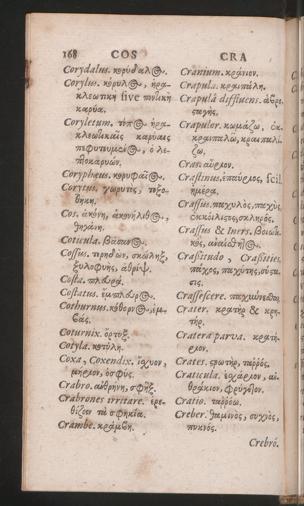 168 COS CRA
Corydalus. κορύδαλος.
Corylus. κόρυλος, ἡρα-
κλεωτικὴ sive ποντικὴ
καρύα.
Coryletum. τόπος ἡρα-
κλεωτικαῖς καρύαις
πεφυτευμένος, ὁ λε-
πτοκαρυών.
Coryphæus. κορυφαῖος.
Corytus. γωρυτὸς, τοξο-
θήκη.
Cos. ἀκόνη, ἀκονήλιθος,
Coticula. βάσανος.
Cossus. τερηδὼν, σκώληξ,
ξυλοφυὴς,
Costa. πλευρά.
Costatus.
Cothurnus. κόθορνος, ἐμ-
βάς.
Coturnix. ὄρτυξ.
Cotyla. κοτύλη.
Coxa, Coxendix. ἰσχίον,
μηρίον, ὀσφύς.
Crabro. ἀνθρήνη, σφήξ.
Crabrones irritare. ἐρε-
θίζειν τὰ σφηκία.
Crambe. κράμβη.
Cranium. κρανίον.
Crapula. κραιπάλη.
Crapulâ diffluens.
Crapulor. κωμάζω, ἐκ
κραιπαλῶ, κραιπαλί-
ζω.
Cras. αὔριον.
Crastinus. ἐπαύριος, scil.
ἡμέρα.
Crassus. παχυλὸς, παχὺς
σκληρός.
Crassus & Iners.
Crassitudo, Crassities.
πάχος, παχύτης,
Crassescere. παχύνεσθαι.
Crater. κρατὴρ & κρη-
τήρ.
Cratera parva. κρατή-
ριον.
Crates. ταῤῥός.
Craticula. ἐσχάριον,
Cratio. ταῤῥόω.
Creber. θαμινὸς, συχνὸς,
πυκνός.
Crebrò.